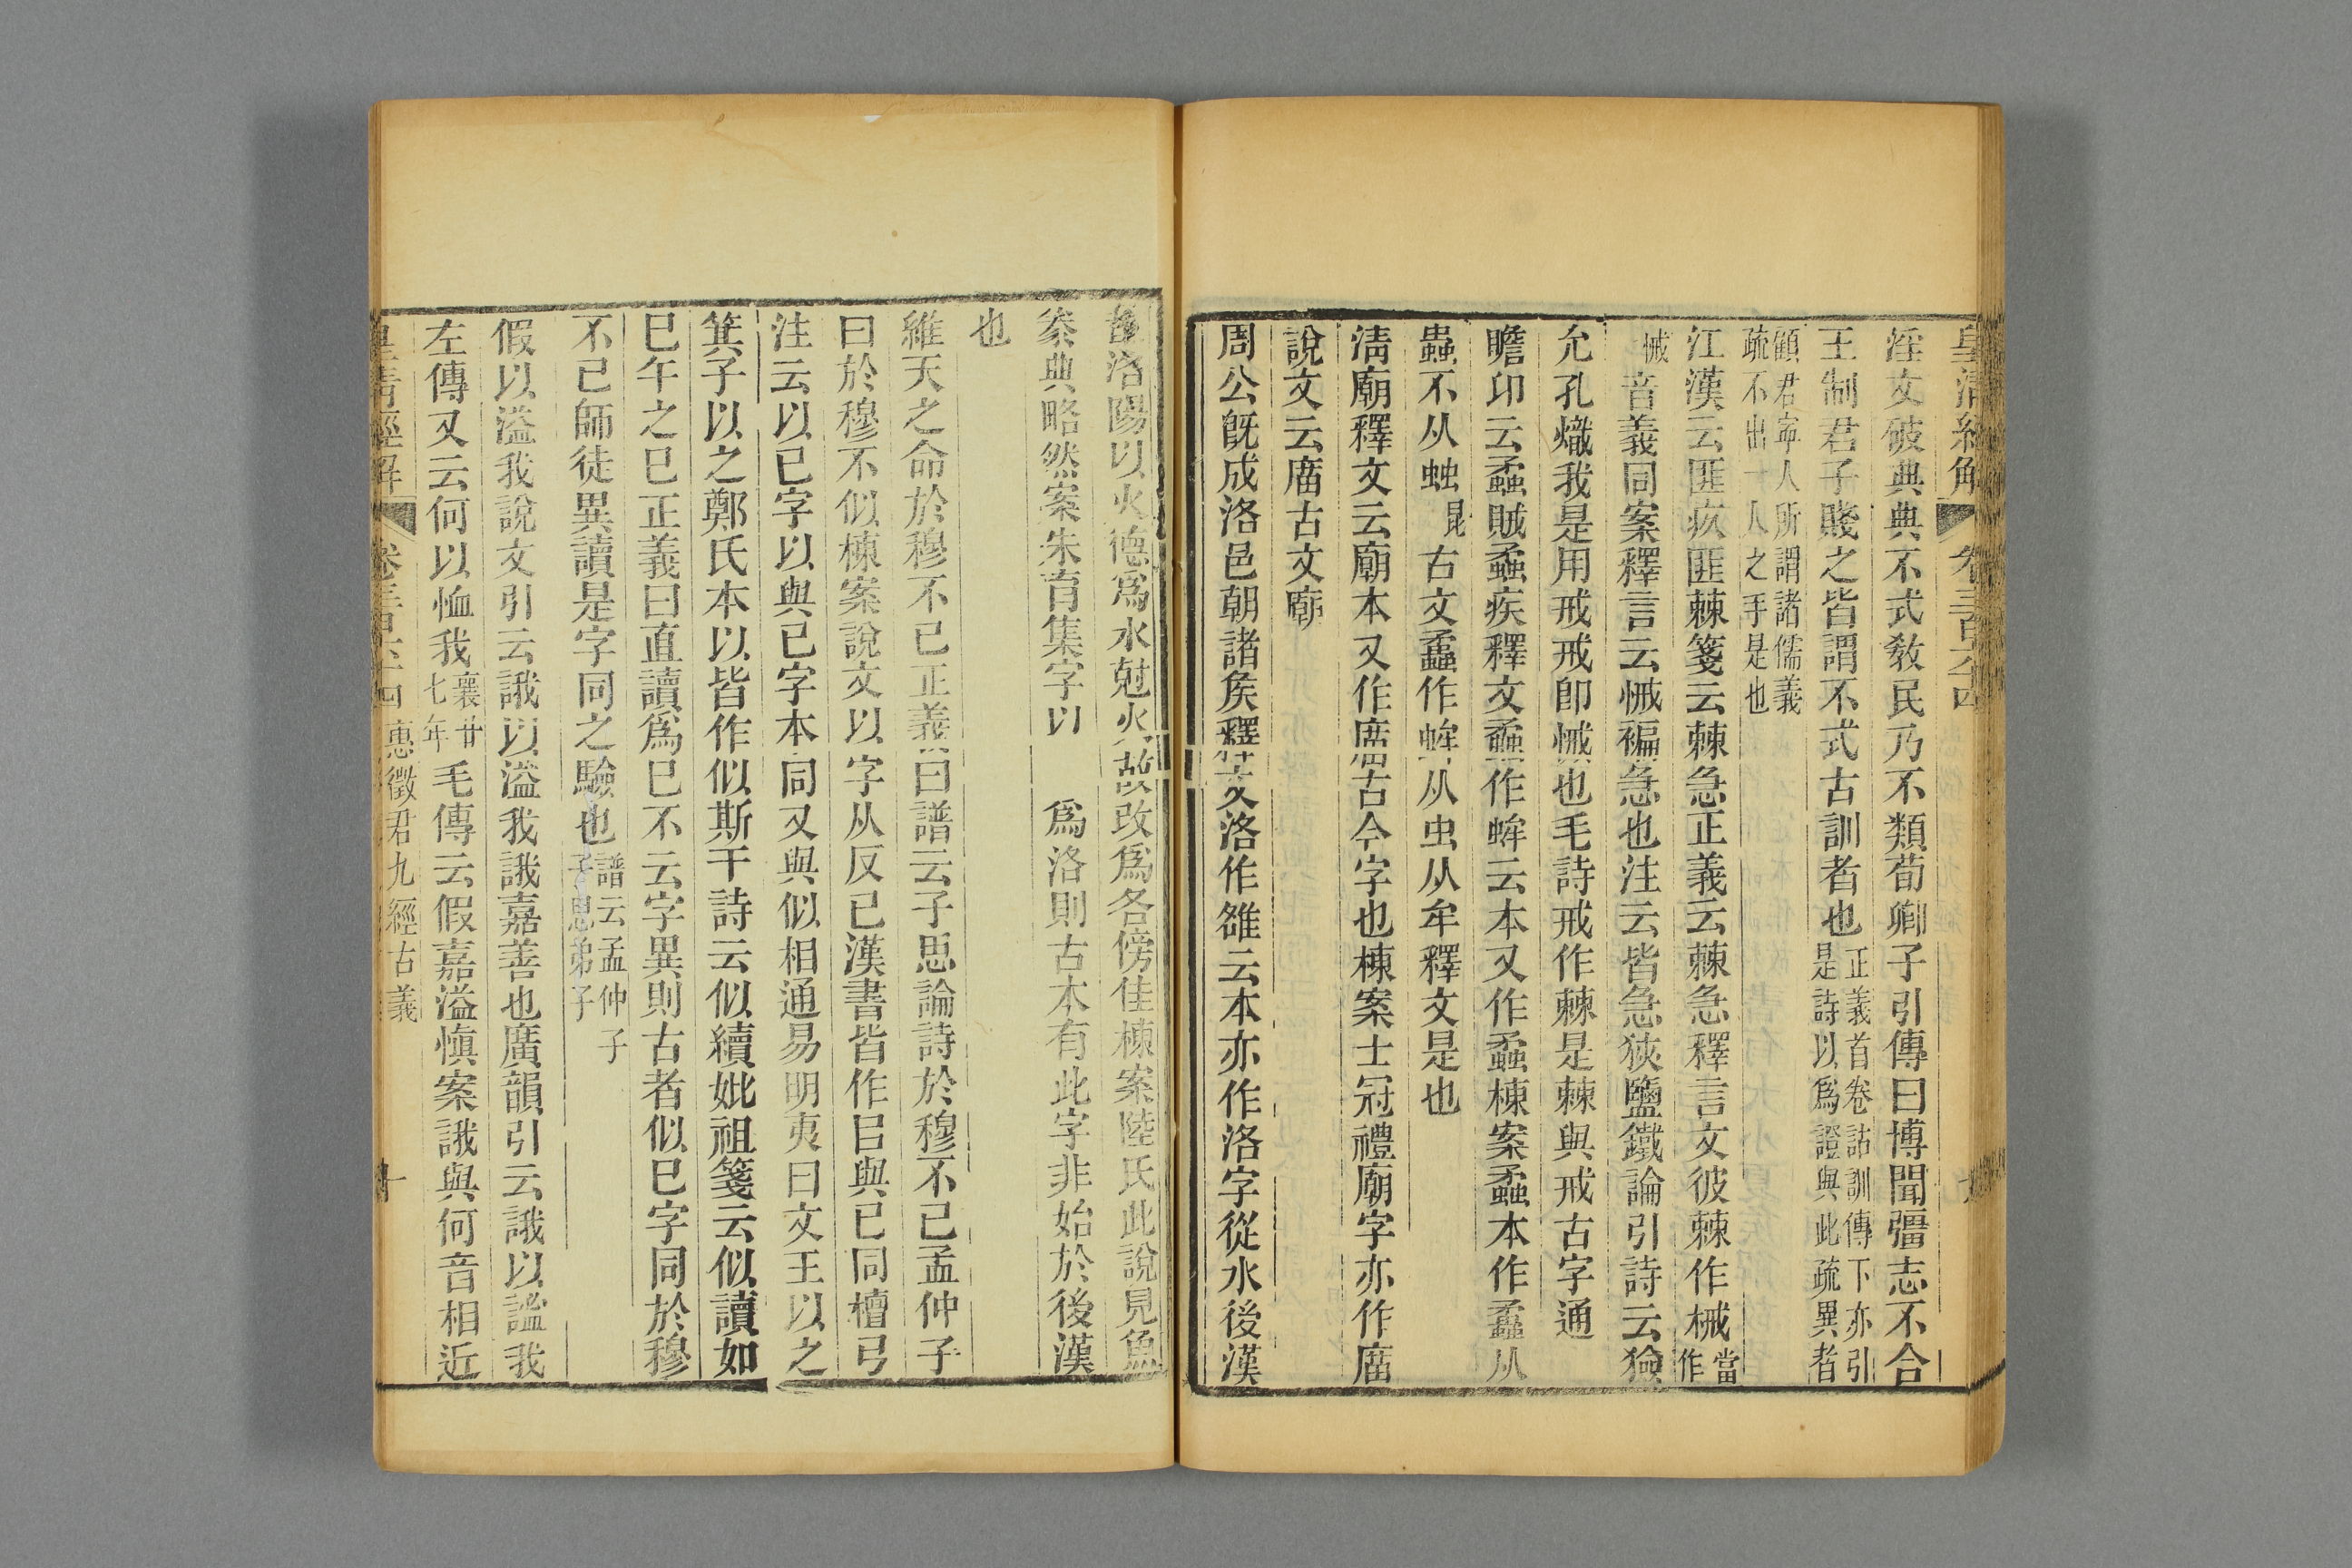 皇清經解 卷三百六十四
淫文破典典不式敎民乃不類荀卿子引傳曰博聞彊志不合
王制君子賤之皆謂不式古訓者也正義首卷詁訓傳下亦引是詩以爲證與此疏異者
顧君寧人所謂諸儒義疏不出一人之手是也
江漢云匪疚匪棘箋云棘急正義云棘急釋言文彼棘作械當作
悈音義同案釋言云悈褊急也注云皆急狹鹽鐵論引詩云獫
允孔熾我是用戒戒卽悈也毛詩戒作棘是棘與戒古字通
瞻卬云蟊賊蟊疾釋文蟊作蛑云本又作蟊棟案蟊本作蟊从
蟲不从䖵昆古文蟊作蛑从虫从牟釋文是也
淸廟釋文云廟本又作庿古今字也棟案士冠禮廟字亦作庿
說文云庿古文廟
周公旣成洛邑朝諸矦釋文洛作雒云本亦作洛字從水後漢
都洛陽以火德爲水尅火故改爲各傍隹棟案陸氏此說見魚
豢典略然案朱育集字以 爲洛則古本有此字非始於後漢
也
維天之命於穆不已正義曰譜云子思論詩於穆不已孟仲子
曰於穆不似棟案說文以字从反已漢書皆作㠯與已同檀弓
注云以已字以與已字本同又與似相通易明夷曰文王以之
箕子以之鄭氏本以皆作似斯干詩云似續妣祖箋云似讀如
巳午之巳正義曰直讀爲巳不云字異則古者似巳字同於穆
不已師徒異讀是字同之驗也譜云孟仲子子思弟子
假以溢我說文引云誐以溢我誐嘉善也廣韻引云誐以謐我
左傳又云何以恤我襄廿七年毛傳云假嘉溢愼案誐與何音相近
皇淸經解 卷三百六十四 惠徵君九經古義 十